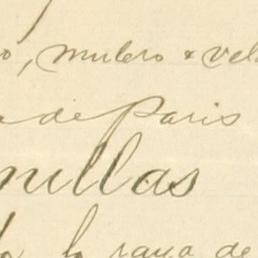 o, mulero & vel
a de Paris
nillas
la raya de